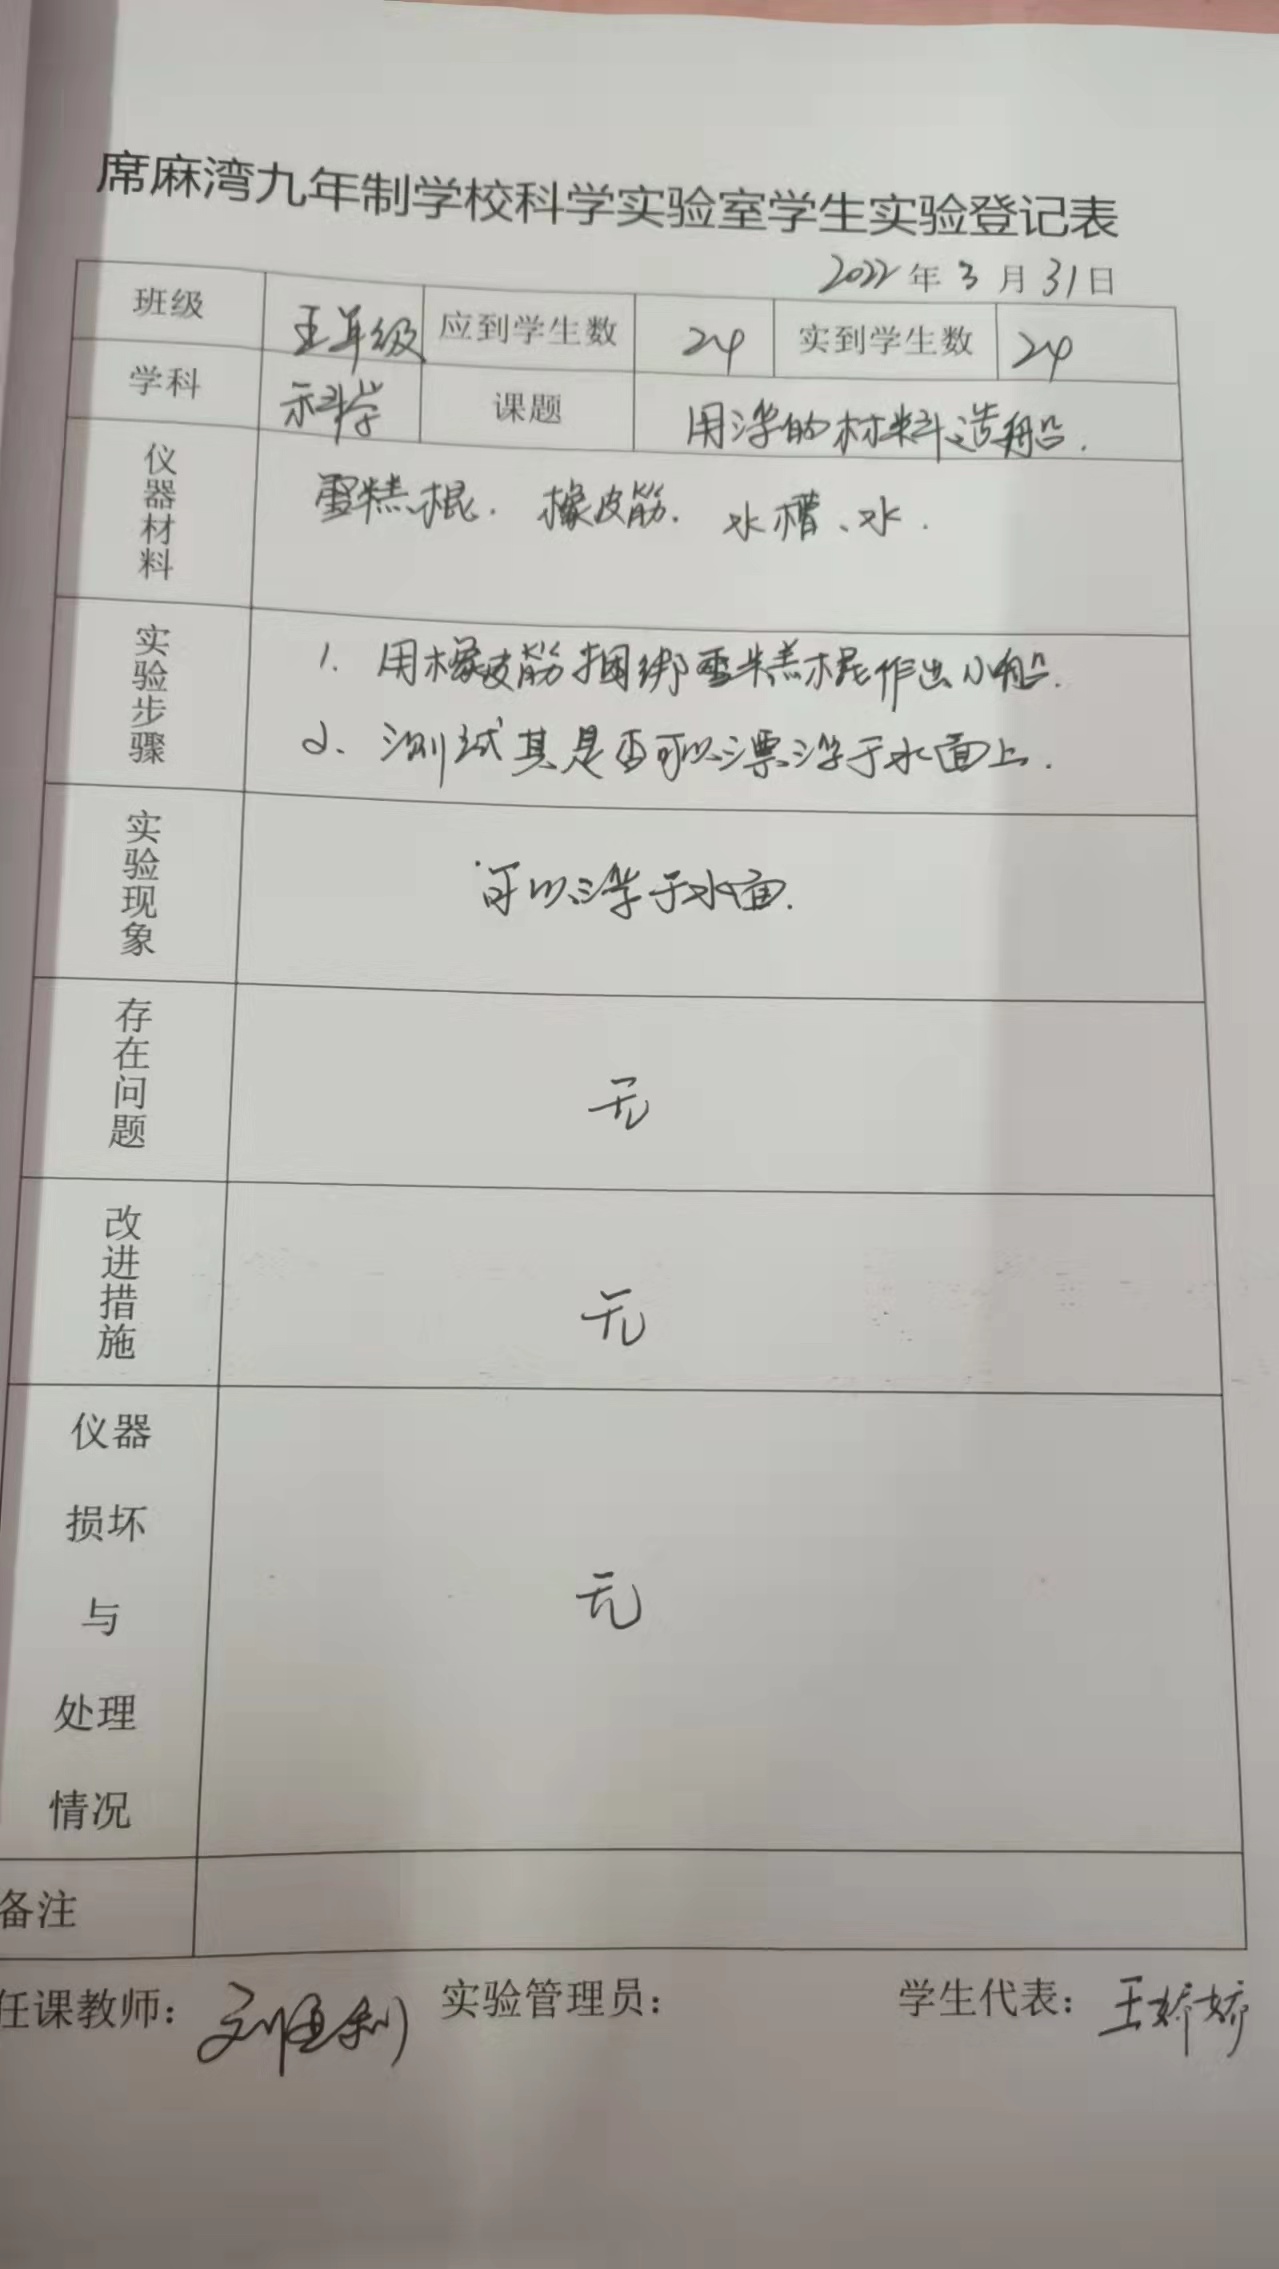 席麻湾九年制学校科学实验室学生实验登记表
2022年3月31日
班级 五年级 应到学生数 24 实到学生数 24
学科 科学 课题 用浮的材料造船.
仪器材料 雪糕棍. 橡皮筋. 水槽、水.
实验步骤
1. 用橡皮筋捆绑雪糕棍作出小船.
2、测试其是否可以漂浮于水面上.
实验现象 可以浮于水面.
存在问题 无
改进措施 无
仪器
损坏
与
处理
情况
无
备注
任课教师: 刘 利 实验管理员: 学生代表: 王娇娇